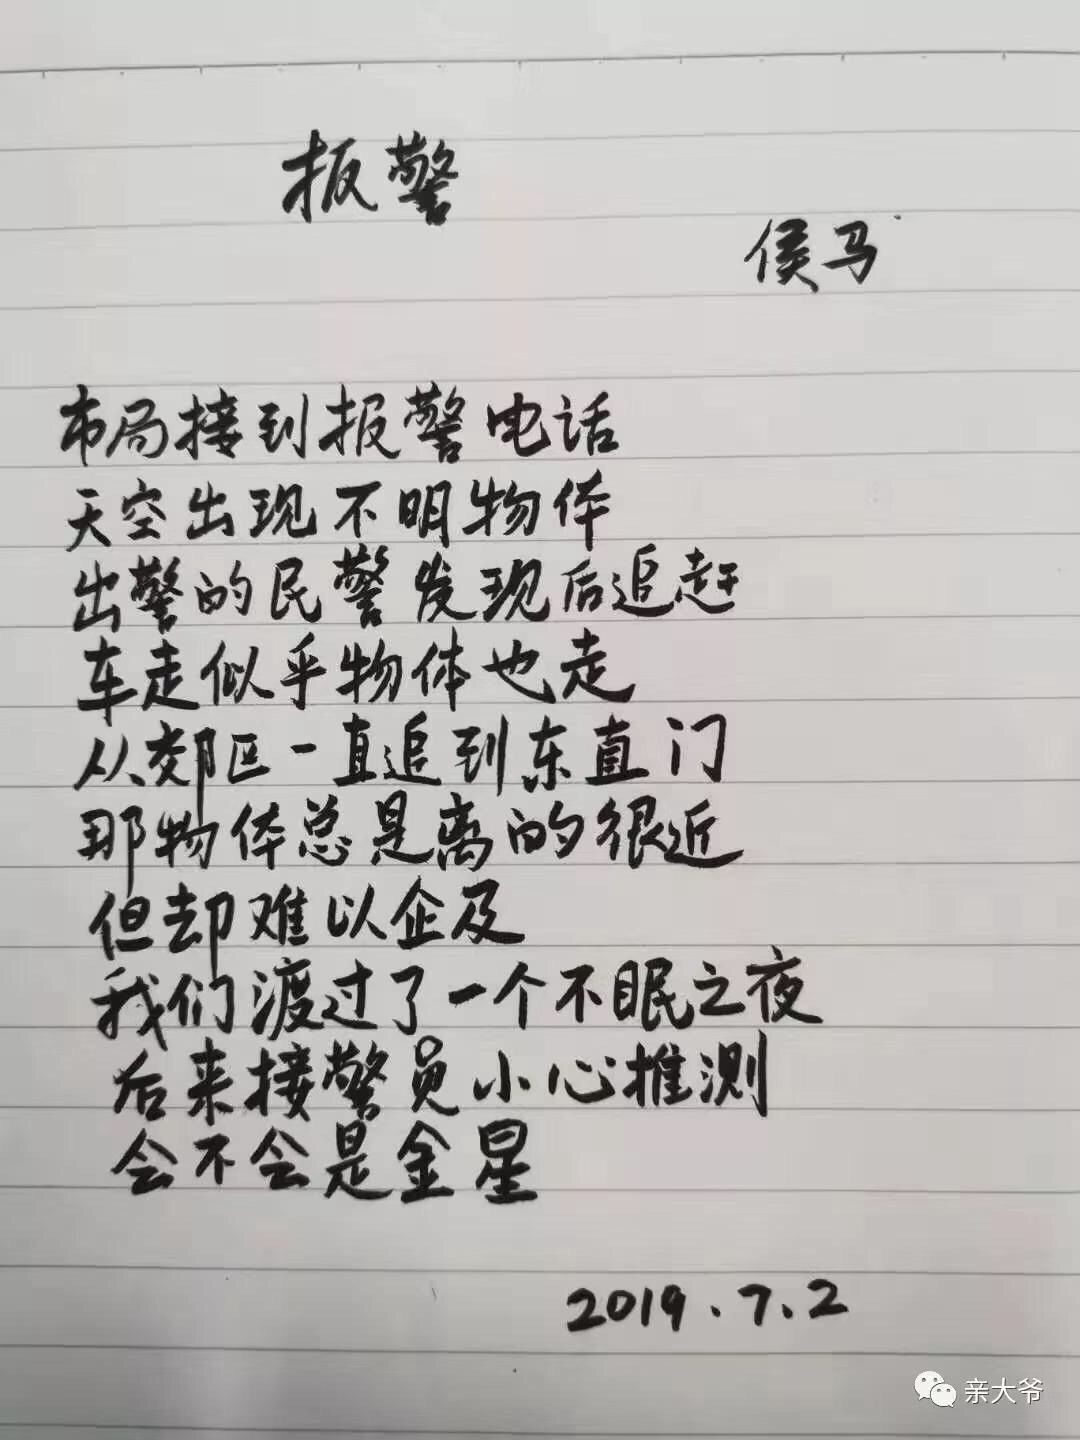 报警
侯马
市局接到报警电话
天空出现不明物体
出警的民警发现后追赶
车走似乎物体也走
从郊区一直追到东直门
那物体总是离的很近
但却难以企及
我们渡过了一个不眠之夜
后来接警员小心推测
会不会是金星
2019.7.2
亲大爷